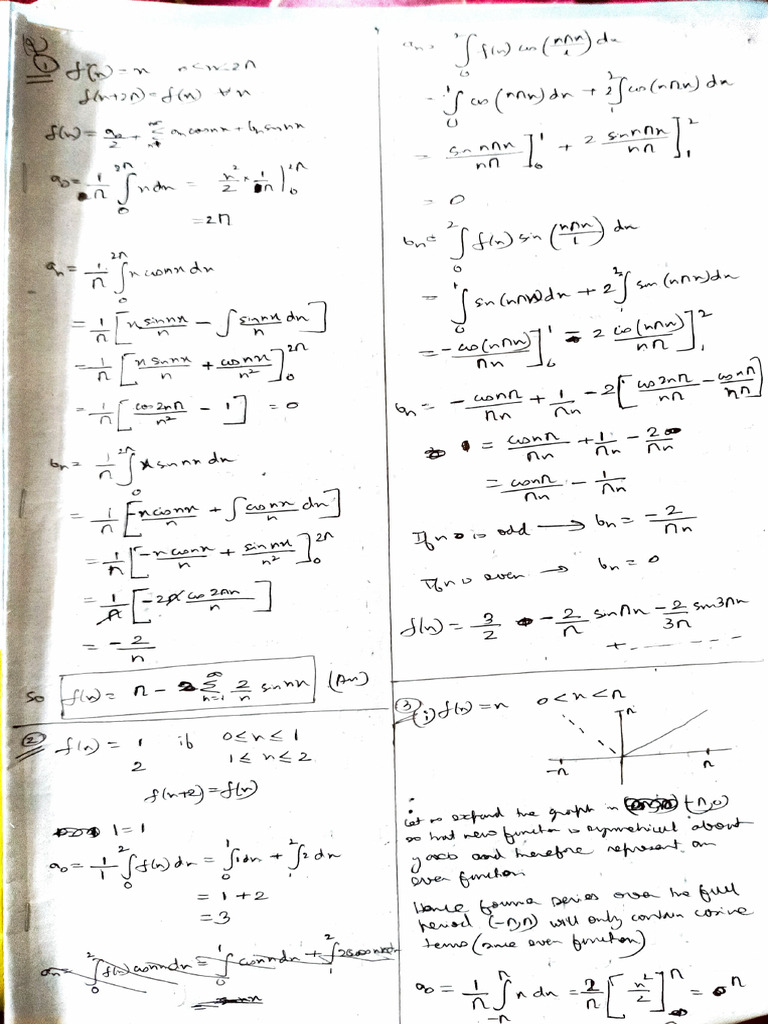 ①
f(x) = x   0<x<2π
f(x+2π) = f(x) ∀x
f(x) = a₀/2 + Σ_{n=1}^{∞} aₙ cosnx + bₙ sinnx
a₀ = 1/π ∫₀^{2π} x dx = x²/2 × 1/π |₀^{2π}
= 2π
aₙ = 1/π ∫₀^{2π} x cosnx dx
= 1/π [x sinnx/n − ∫ sinnx/n dx]
= 1/π [x sinnx/n + cosnx/n²]₀^{2π}
= 1/π [cos2nπ/n² − 1] = 0
bₙ = 1/π ∫₀^{2π} x sinnx dx
= 1/π [−x cosnx/n + ∫ cosnx/n dx]
= 1/π [−x cosnx/n + sinnx/n²]₀^{2π}
= 1/π [−2π cos2πn/n]
= −2/n
so f(x) = π − Σ_{n=1}^{∞} 2/n sinnx (An)
② f(x) = 1 if 0≤x≤1
2   1≤x≤2
f(x+2) = f(x)
l = 1
a₀ = 1/1 ∫₀² f(x) dx = ∫₀¹ 1dx + ∫₁² 2dx
= 1+2
= 3
aₙ = ∫₀² f(x) cos(nπx/1) dx
= ∫₀¹ cos(nπx) dx + 2∫₁² cos(nπx) dx
= sin nπx/nπ ]₀¹ + 2 sin nπx/nπ ]₁²
= 0
bₙ = ∫₀² f(x) sin(nπx/1) dx
= ∫₀¹ sin(nπx)dx + 2∫₁² sin(nπx)dx
= −cos(nπx)/πn ]₀¹ − 2 cos(nπx)/nπ ]₁²
bₙ = −cosnπ/πn + 1/πn − 2[cos2nπ/nπ − cosnπ/nπ]
= cosnπ/πn + 1/πn − 2/πn
= cosnπ/πn − 1/πn
If n is odd → bₙ = −2/πn
If n is even → bₙ = 0
f(x) = 3/2 − 2/π sinπx − 2/3π sin3πx
+ - - - - - -
③ i) f(x) = x   0<x<π
π
−π   π
Let us expand the graph in (−π,0)
so that new function is symmetrical about
y axis and therefore represent an
even function
Hence fourier series over the full
period (−π,π) will only contain cosine
terms (since even function)
a₀ = 1/π ∫_{−π}^{π} x dx = 2/π [x²/2]^{π} = π